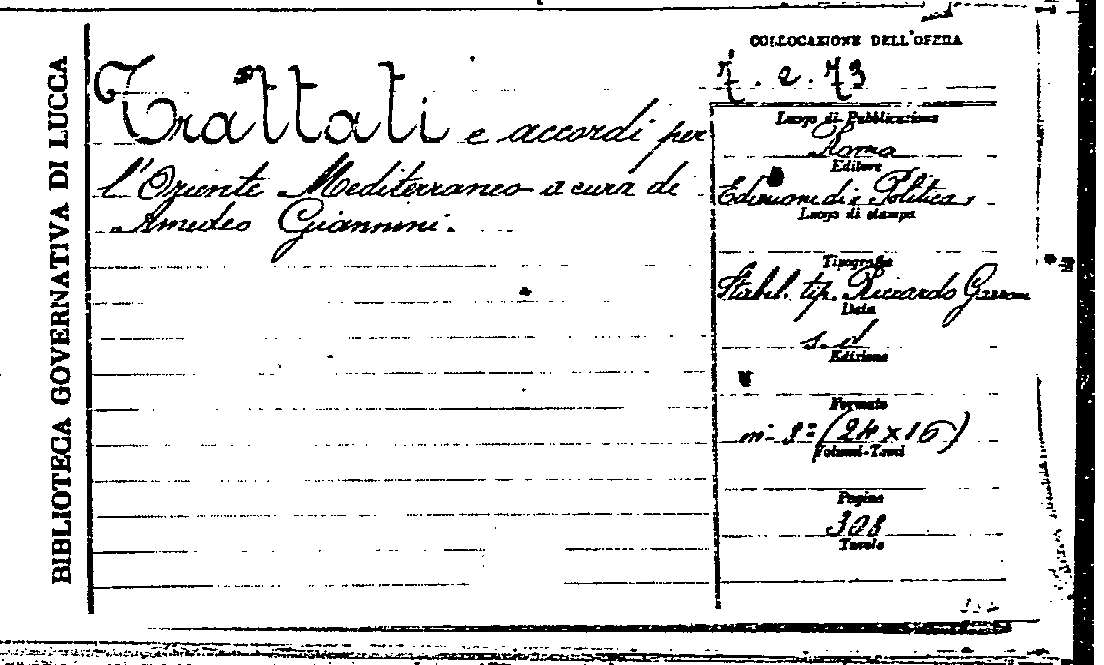 BIBLIOTECA GOVERNATIVA DI LUCCA
Trattati e accordi per
l'Oriente Mediterraneo a cura di
Amedeo Giannini.
COLLOCAZIONE DELL'OPERA
7. 2. 73
Luogo di Pubblicazione
Roma
Editore
Edizione di "Politica"
Luogo di stampa
Tipografia
Stabil. tip. Riccardo
Data
s. d
Edizione
Formato
in- 8º (24 x 16)
Volumi-Tomi
Pagine
308
Tavole